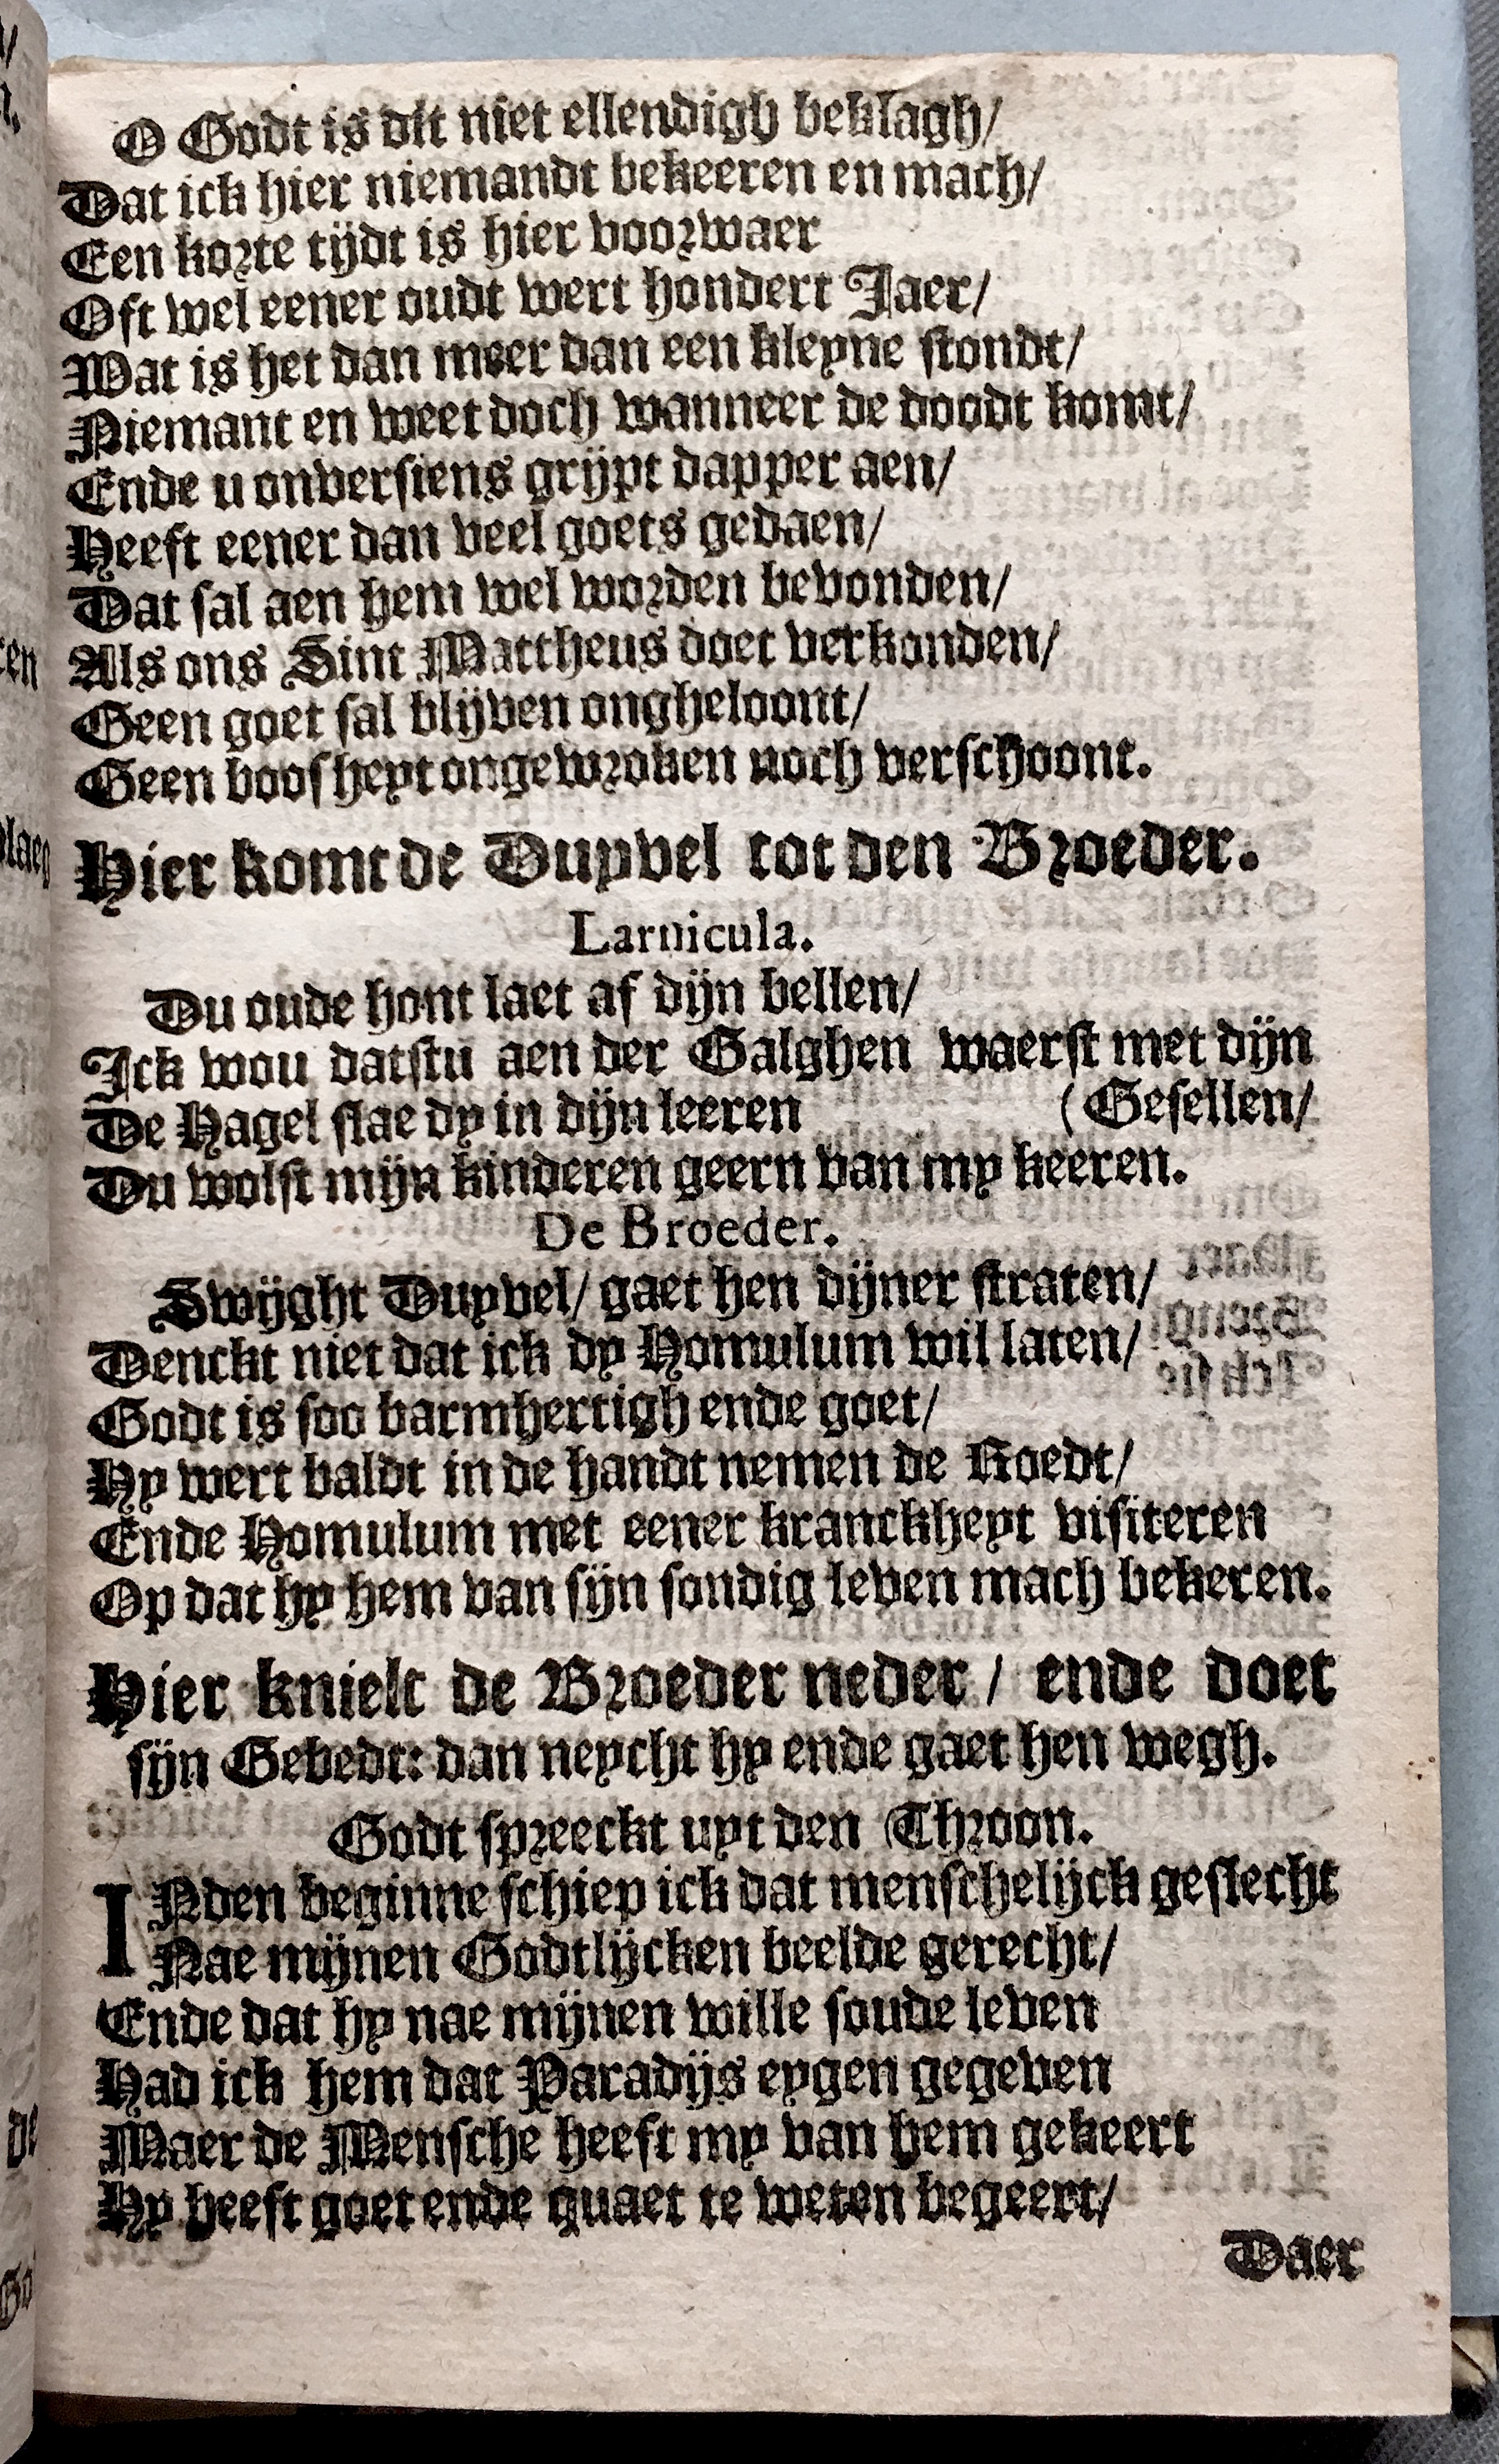 O Godt is dit niet ellendigh beklagh/
Dat ick hier niemandt bekeeren en mach/
Een korte tijdt is hier voorwaer
Oft wel eener oudt wert hondert Jaer/
Wat is het dan meer dan een kleyne stondt/
Niemant en weet doch wanneer de doodt komt/
Ende u onversiens grijpt dapper aen/
Heeft eener dan veel goets gedaen/
Dat sal aen hem wel worden bevonden/
Als ons Sint Mattheus doet verkonden/
Geen goet sal blijven ongheloont/
Geen boosheyt ongewroken noch verschoont.
Hier komt de Duyvel tot den Broeder.
Larvicula.
Du oude hont laet af dijn bellen/
Ick wou datstu aen der Galghen waerst met dijn
De Hagel slae dy in dijn leeren (Gesellen/
Du wolst mijn kinderen geern van my keeren.
De Broeder.
Swijght Duyvel/ gaet hen dijner straten/
Denckt niet dat ick dy Homulum wil laten/
Godt is soo barmhertigh ende goet/
Hy wert baldt in de handt nemen de Roedt/
Ende Homulum met eener kranckheyt visiteren
Op dat hy hem van sijn sondig leven mach bekeren.
Hier knielt de Broeder neder / ende doet
sijn Gebedt: dan neycht hy ende gaet hen wegh.
Godt spreeckt uyt den Throon.
INden beginne schiep ick dat menschelijck geslecht
Nae mijnen Godtlijcken beelde gerecht/
Ende dat hy nae mijnen wille soude leven
Had ick hem dat Paradijs eygen gegeven
Maer de Mensche heeft my van hem gekeert
Hy heeft goet ende quaet te weten begeert/
Daer